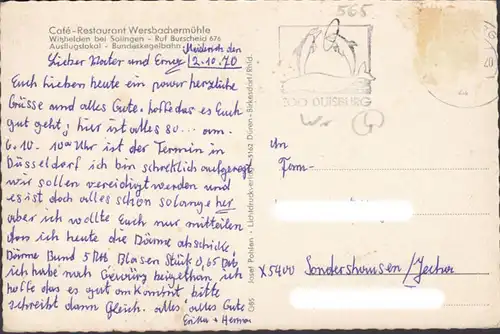 Café-Restaurant Wersbachermühle
Witzhelden bei Solingen - Ruf Burscheid 676
Ausflugslokal - Bundeskegelbahn
Meiderich den
2.10.70
Lieber Vater und Erna
Euch lieben heute ein paar herzliche
Grüsse und alles Gute. hoffe das es Euch
gut geht, hier ist alles so... am
6.10. 10 Uhr ist der Termin in
Düsseldorf ich bin schreklich aufgeregt
wir sollen vereidigt werden und
es ist doch alles schon solange her
aber ich wollte Euch nur mitteilen
das ich heute die Därme abschicke
Därme Bund 5 Blasen Stück 0,65
ich habe noch Gewürz beigethan ich
hoffe das es gut ankommt bitte
schreibt dann gleich. alles alles Gute
Erika + Herma
G85 Josef Pohlen - Lichtdruckverlag - 5162 Düren-Birkesdorf/Rhld.
565
DUISBURG
4
An
Fam-
X5400 Sondershausen / Jecha